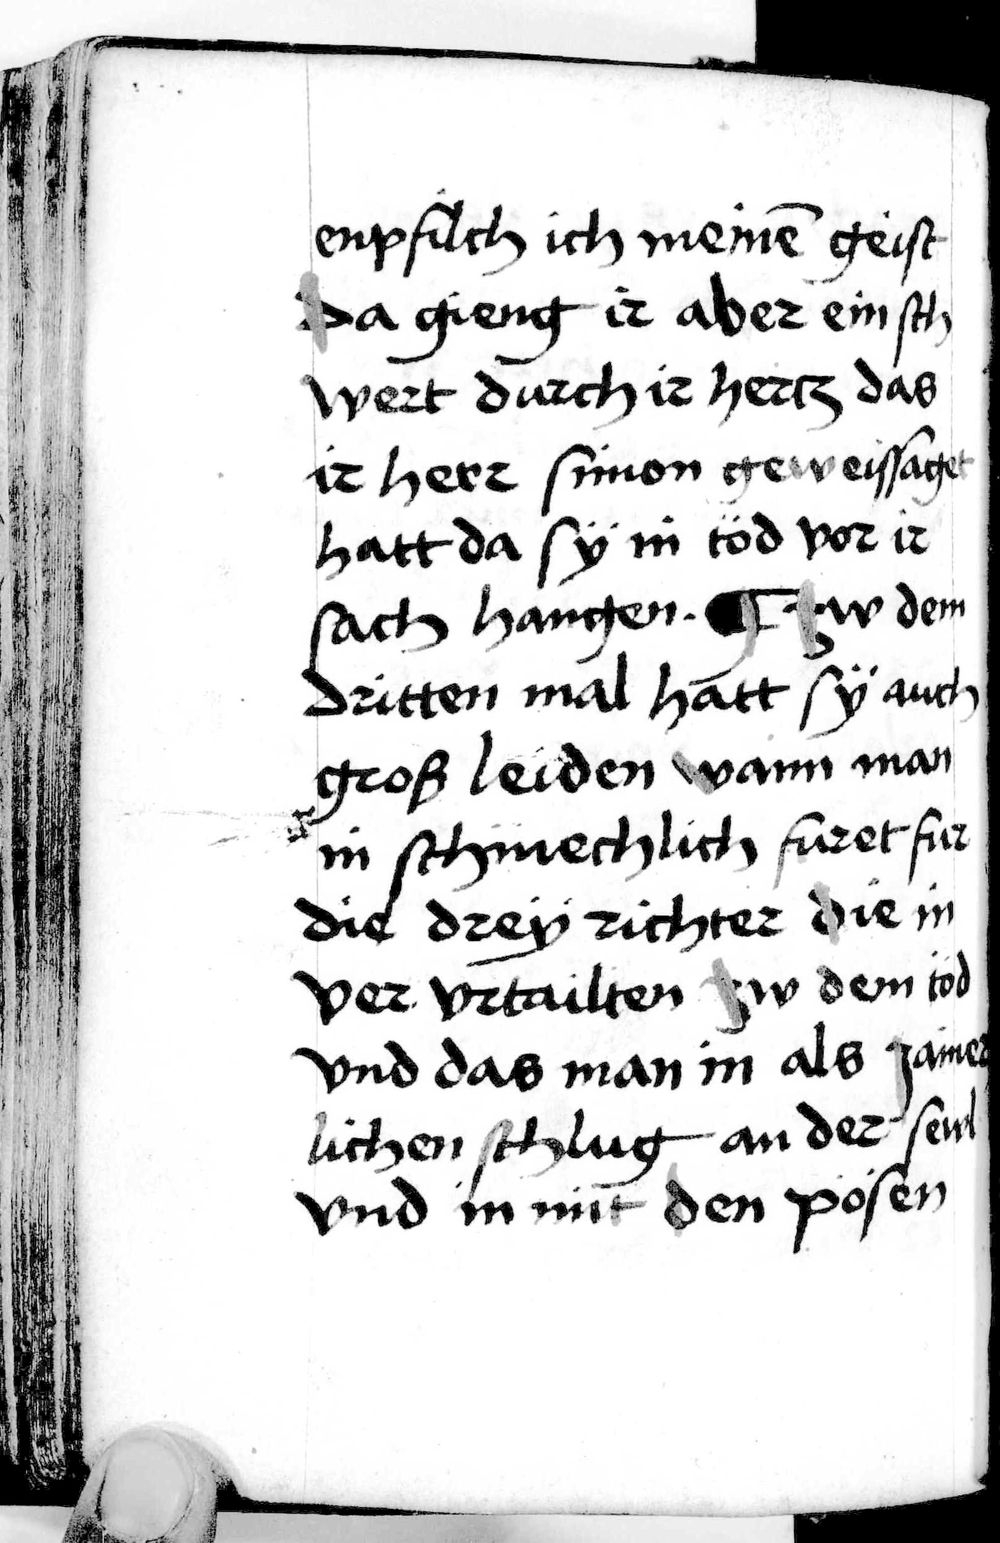 enpfilch ich meinē geist
da gieng ir aber ein sch
wert durch ir hertz das
ir herr simon geweissaget
hatt da sÿ in töd vor ir
sach hangen. ¶ zw dem
dritten mal hatt sÿ auch
groß leiden wann man
in schmechlich füret für
die dreÿ richter die in
ver vrtailten zw dem töd
vnd das man in als jamer
lichen schlug an der sewl
vnd in mit den pösen